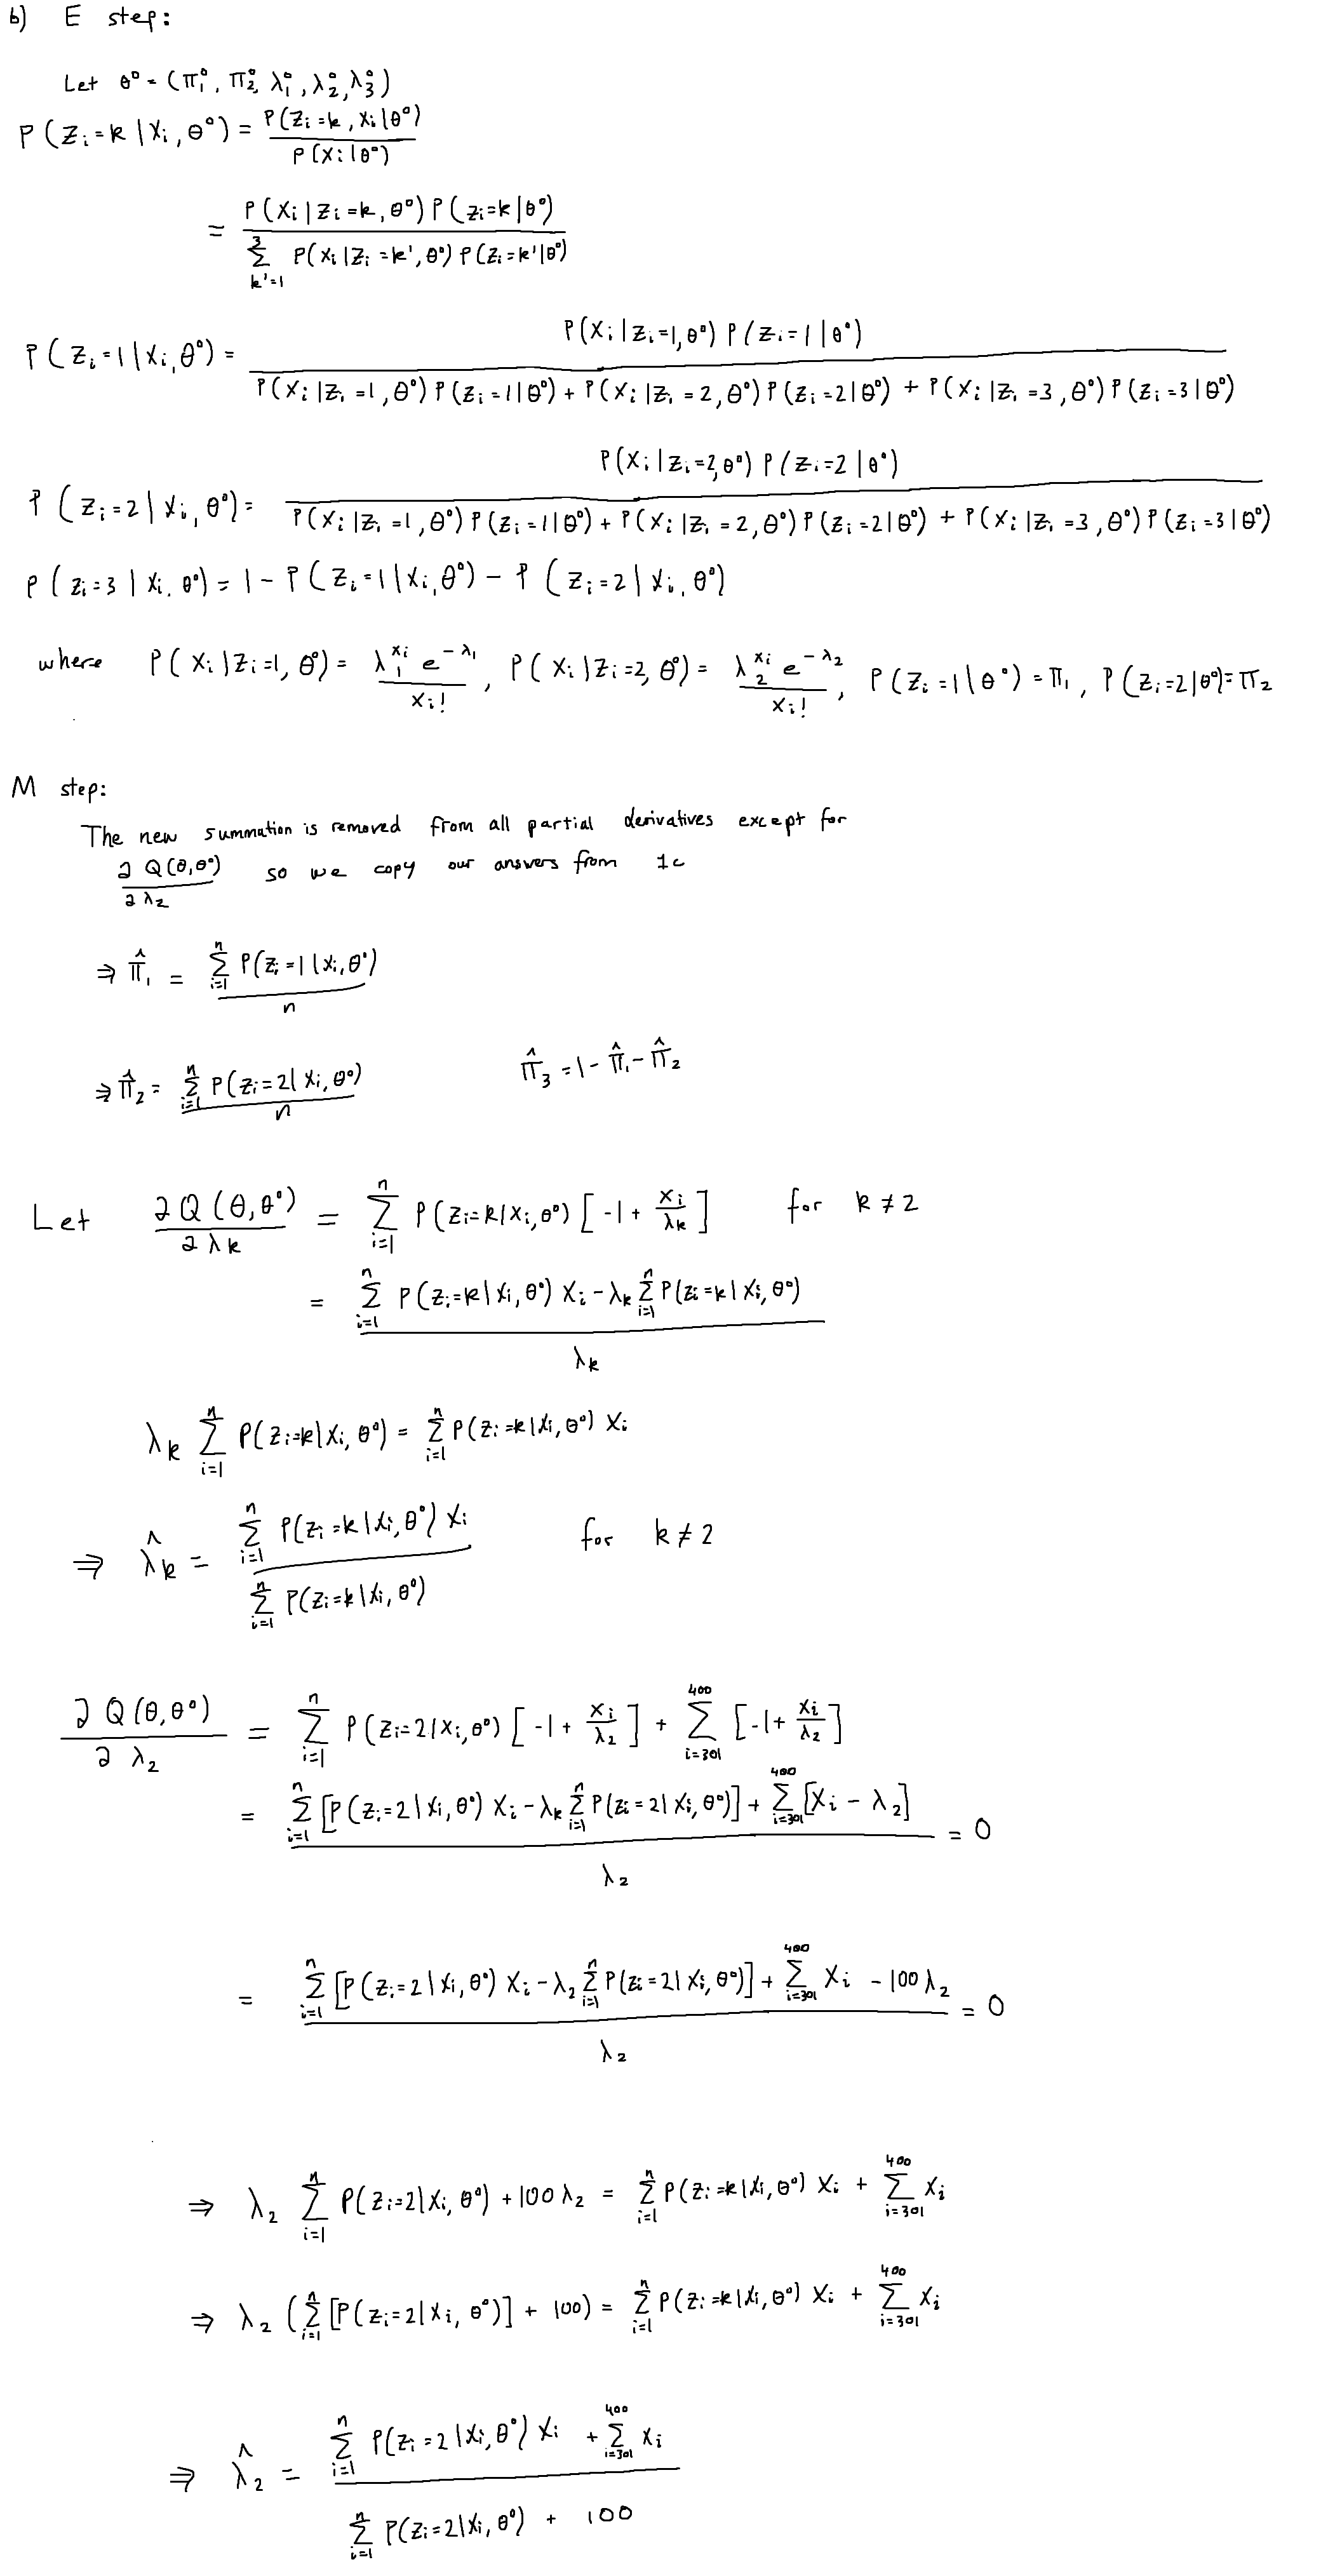 b) E step:
Let θ° = (π₁°, π₂°, λ₁°, λ₂°, λ₃°)
P(Zᵢ=k | Xᵢ, θ°) = P(Zᵢ=k, Xᵢ | θ°) / P(Xᵢ | θ°)
= P(Xᵢ | Zᵢ=k, θ°) P(Zᵢ=k | θ°) / ∑_{k'=1}^{3} P(Xᵢ | Zᵢ=k', θ°) P(Zᵢ=k' | θ°)
P(Zᵢ=1 | Xᵢ, θ°) = P(Xᵢ | Zᵢ=1, θ°) P(Zᵢ=1 | θ°) / P(Xᵢ | Zᵢ=1, θ°) P(Zᵢ=1 | θ°) + P(Xᵢ | Zᵢ=2, θ°) P(Zᵢ=2 | θ°) + P(Xᵢ | Zᵢ=3, θ°) P(Zᵢ=3 | θ°)
P(Zᵢ=2 | Xᵢ, θ°) = P(Xᵢ | Zᵢ=2, θ°) P(Zᵢ=2 | θ°) / P(Xᵢ | Zᵢ=1, θ°) P(Zᵢ=1 | θ°) + P(Xᵢ | Zᵢ=2, θ°) P(Zᵢ=2 | θ°) + P(Xᵢ | Zᵢ=3, θ°) P(Zᵢ=3 | θ°)
P(Zᵢ=3 | Xᵢ, θ°) = 1 - P(Zᵢ=1 | Xᵢ, θ°) - P(Zᵢ=2 | Xᵢ, θ°)
where P(Xᵢ | Zᵢ=1, θ°) = λ₁^{xᵢ} e^{-λ₁} / Xᵢ!, P(Xᵢ | Zᵢ=2, θ°) = λ₂^{xᵢ} e^{-λ₂} / Xᵢ!, P(Zᵢ=1 | θ°) = π₁, P(Zᵢ=2 | θ°) = π₂
M step:
The new summation is removed from all partial derivatives except for
∂Q(θ,θ°) / ∂λ₂ so we copy our answers from 1c
⇒ π̂₁ = ∑_{i=1}^{n} P(Zᵢ=1 | Xᵢ, θ°) / n
⇒ π̂₂ = ∑_{i=1}^{n} P(Zᵢ=2 | Xᵢ, θ°) / n π̂₃ = 1 - π̂₁ - π̂₂
Let ∂Q(θ,θ°) / ∂λₖ = ∑_{i=1}^{n} P(Zᵢ=k | Xᵢ, θ°) [-1 + Xᵢ/λₖ] for k ≠ 2
= ∑_{i=1}^{n} P(Zᵢ=k | Xᵢ, θ°) Xᵢ - λₖ ∑_{i=1}^{n} P(Zᵢ=k | Xᵢ, θ°) / λₖ
λₖ ∑_{i=1}^{n} P(Zᵢ=k | Xᵢ, θ°) = ∑_{i=1}^{n} P(Zᵢ=k | Xᵢ, θ°) Xᵢ
⇒ λ̂ₖ = ∑_{i=1}^{n} P(Zᵢ=k | Xᵢ, θ°) Xᵢ / ∑_{i=1}^{n} P(Zᵢ=k | Xᵢ, θ°) for k ≠ 2
∂Q(θ,θ°) / ∂λ₂ = ∑_{i=1}^{n} P(Zᵢ=2 | Xᵢ, θ°) [-1 + Xᵢ/λ₂] + ∑_{i=301}^{400} [-1 + Xᵢ/λ₂]
= ∑_{i=1}^{n} [P(Zᵢ=2 | Xᵢ, θ°) Xᵢ - λₖ ∑_{i=1}^{n} P(Zᵢ=2 | Xᵢ, θ°)] + ∑_{i=301}^{400} [Xᵢ - λ₂] / λ₂ = 0
= ∑_{i=1}^{n} [P(Zᵢ=2 | Xᵢ, θ°) Xᵢ - λ₂ ∑_{i=1}^{n} P(Zᵢ=2 | Xᵢ, θ°)] + ∑_{i=301}^{400} Xᵢ - 100λ₂ / λ₂ = 0
⇒ λ₂ ∑_{i=1}^{n} P(Zᵢ=2 | Xᵢ, θ°) + 100λ₂ = ∑_{i=1}^{n} P(Zᵢ=k | Xᵢ, θ°) Xᵢ + ∑_{i=301}^{400} Xᵢ
⇒ λ₂ (∑_{i=1}^{n} [P(Zᵢ=2 | Xᵢ, θ°)] + 100) = ∑_{i=1}^{n} P(Zᵢ=k | Xᵢ, θ°) Xᵢ + ∑_{i=301}^{400} Xᵢ
⇒ λ̂₂ = ∑_{i=1}^{n} P(Zᵢ=2 | Xᵢ, θ°) Xᵢ + ∑_{i=301}^{400} Xᵢ / ∑_{i=1}^{n} P(Zᵢ=2 | Xᵢ, θ°) + 100